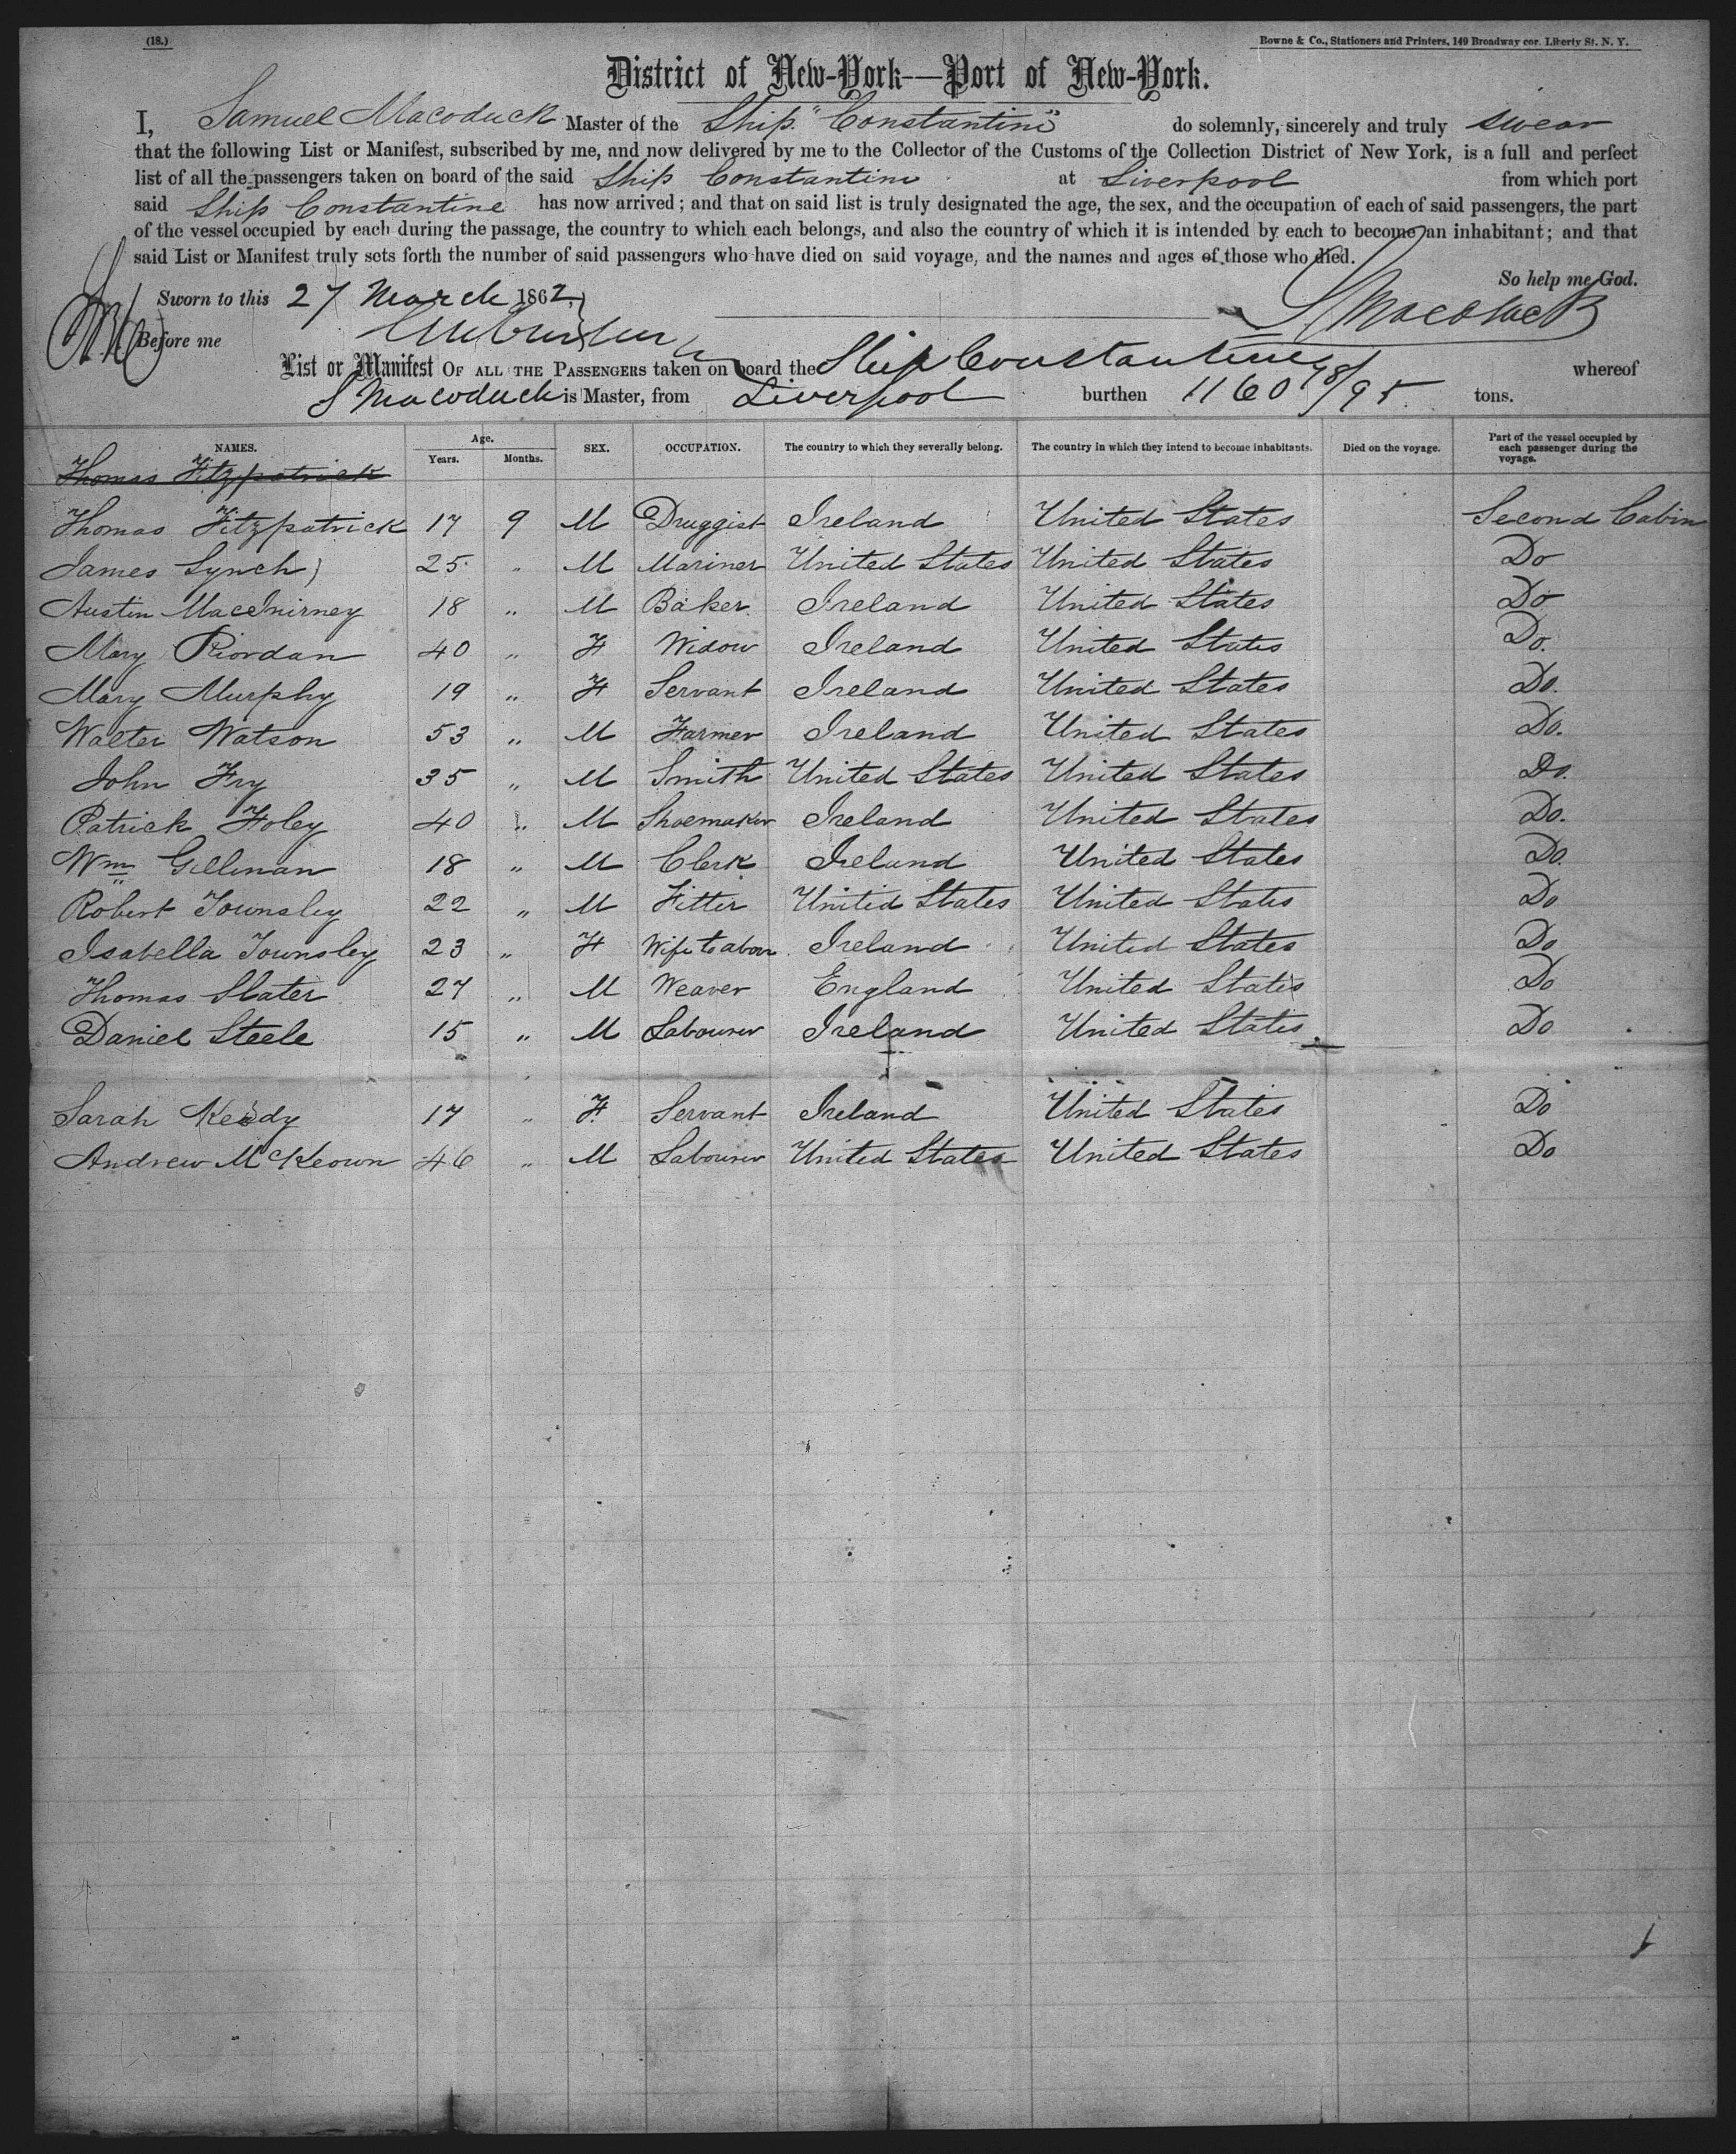 (18.)
Bowne & Co., Stationers and Printers, 149 Broadway cor. Liberty St. N. Y.
District of New-York—Port of New-York.
I, Samuel Macoduck Master of the Ship "Constantine" do solemnly, sincerely and truly swear
that the following List or Manifest, subscribed by me, and now delivered by me to the Collector of the Customs of the Collection District of New York, is a full and perfect
list of all the passengers taken on board of the said Ship Constantine at Liverpool from which port
said Ship Constantine has now arrived; and that on said list is truly designated the age, the sex, and the occupation of each of said passengers, the part
of the vessel occupied by each during the passage, the country to which each belongs, and also the country of which it is intended by each to become an inhabitant; and that
said List or Manifest truly sets forth the number of said passengers who have died on said voyage, and the names and ages of those who died.
So help me God.
Sworn to this 27 March 1862, S Macoduck
Before me
List or Manifest OF ALL THE PASSENGERS taken on board the Ship Constantine whereof
S Macoduck is Master, from Liverpool burthen 1160 78/95 tons.
NAMES. Age. Years. Months. SEX. OCCUPATION. The country to which they severally belong. The country in which they intend to become inhabitants. Died on the voyage. Part of the vessel occupied by each passenger during the voyage.
Thomas Fitzpatrick
Thomas Fitzpatrick 17 9 M Druggist Ireland United States Second Cabin
James Lynch 25 " M Mariner United States United States Do
Austin MacInirney 18 " M Baker Ireland United States Do
Mary Riordan 40 " F Widow Ireland United States Do.
Mary Murphy 19 " F Servant Ireland United States Do.
Walter Watson 53 " M Farmer Ireland United States Do.
John Fry 35 " M Smith United States United States Do.
Patrick Foley 40 " M Shoemaker Ireland United States Do.
Wm Gillman 18 " M Clerk Ireland United States Do.
Robert Townsley 22 " M Fitter United States United States Do
Isabella Townsley 23 " F Wife to above Ireland United States Do
Thomas Slater 27 " M Weaver England United States Do
Daniel Steele 15 " M Labourer Ireland United States Do
Sarah 17 " F. Servant Ireland United States Do
Andrew McKeown 46 " M Labourer United States United States Do